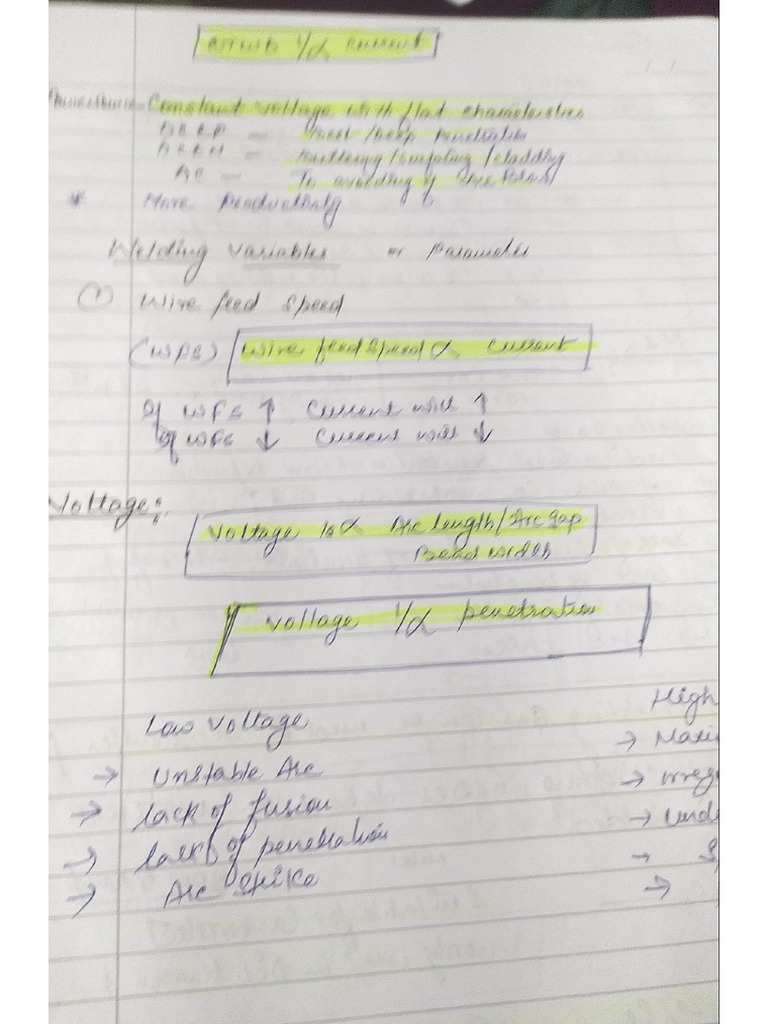 CTWD 1/α Current
Power Source - Constant voltage with flat characteristics
DCEP - Great / Deep Penetration
DCEN = Buttering / surfacing / cladding
AC - To avoiding of Arc Blow
* More Productivity
Welding variables or Parameter
① Wire feed Speed
(WFS) Wire feed speed α current
If WFS ↑ Current will ↑
If WFS ↓ Current will ↓
Voltage:-
Voltage is α Arc length / Arc gap
Bead width
Voltage 1/α penetration
Low Voltage High
→ Unstable Arc →
→ lack of fusion →
→ lack of penetration → Und
→ Arc Strike → S
→